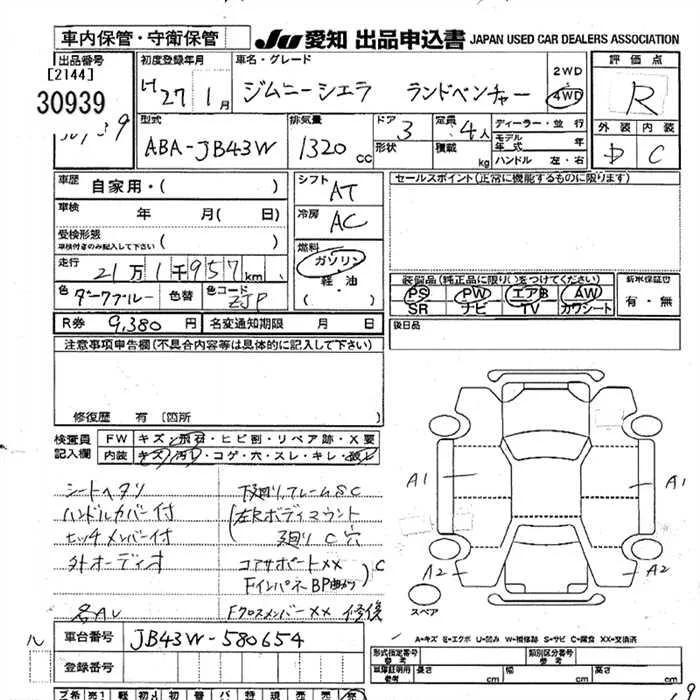 車内保管・守衛保管
JU 愛知 出品申込書 JAPAN USED CAR DEALERS ASSOCIATION
出品番号
[2144]
30939
初度登録年月
H 27年 1月
車名・グレード
ジムニーシエラ ランドベンチャー
2WD
4WD
評価点
R
型式
ABA-JB43W
排気量
1320 CC
ドア 3
形状
定員 4人
積載 kg
ディーラー・並行
モデル年式 年
ハンドル 左・右
外装 内装
D C
車歴 自家用・( )
車検 年 月( 日)
受検形態
車検付きのみ記入して下さい ( )
走行
21万1千957km
色 ダークブルー 色替 色コード ZJP
R券 9,380円 名変通知期限 月 日
シフト AT
冷房 AC
燃料
ガソリン
軽油
( ・ )
セールスポイント(正常に機能するものに限ります)
装備品(純正品に限り○をつけてください)
PS PW エアB AW
SR ナビ TV カワシート
新車保証書
有・無
後日品
注意事項申告欄(不具合内容等は具体的に記入して下さい)
修復歴 有 〔箇所
検査員記入欄
FW キズ・飛石・ヒビ割・リペア跡・X要
内装 キズ・汚れ・コゲ・穴・スレ・キレ・
シートヘタリ
ハンドルカバー付
ヒッチメンバー付
外オーディオ
下廻り、フレームSC
左Rボディマウント
廻りC穴
コアサポートXX
FインパネBP曲り
C
FクロスメンバーXX 修復
A1
A1
A2
A2
スペア
A=キズ E=エクボ U=凹み W=補修跡 S=サビ C=腐食 XX=交換済
車台番号 JB43W-580654
登録番号
形式指定番号 参考
類別区分番号 参考
車庫証明用 参考 長さ 幅 高さ